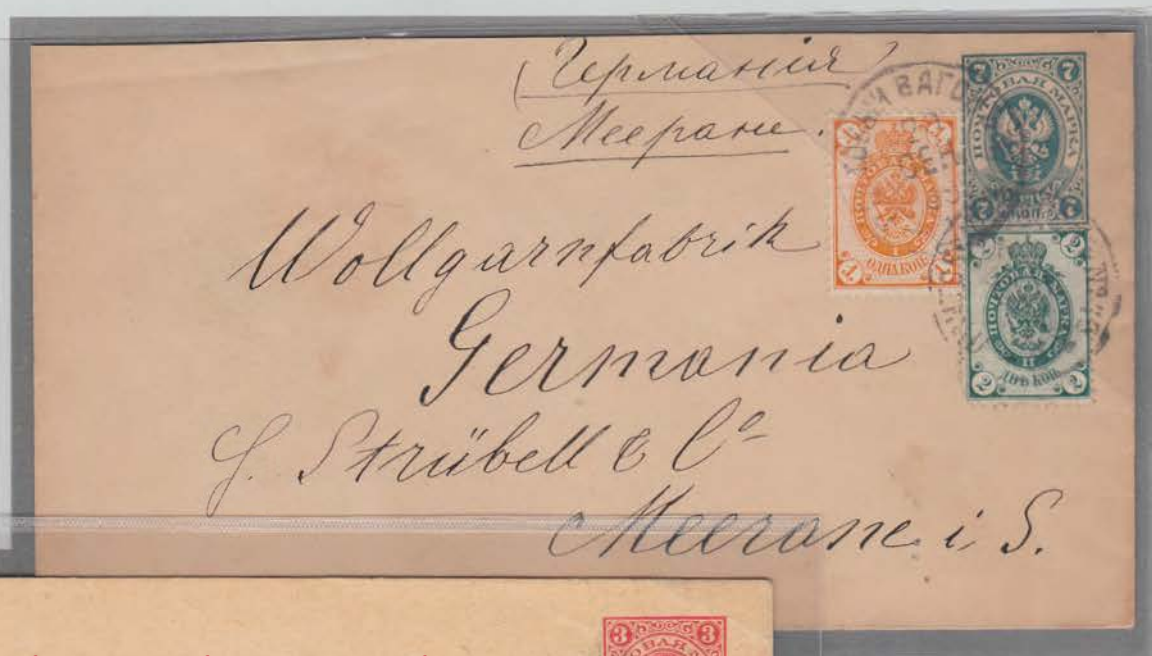 Германия
Мееране.
Wollgarnfabrik
Germania
G. Strübell & Co
Meerane i. S.
7 7
ПОЧТОВАЯ МАРКА
7 7
1 1
ПОЧТОВАЯ МАРКА
1
ОДНА КОП.
1 1
2 2
ПОЧТОВАЯ МАРКА
II
ДВѢ КОП.
2 2
ВАГ
3 3
ОВАЯ М